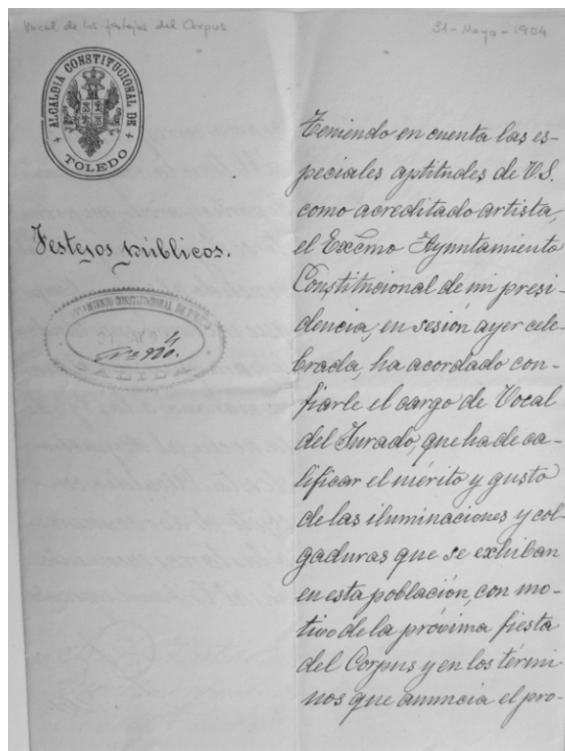 Vocal de los festejos del Corpus
31-Mayo-1904
ALCALDIA CONSTITUCIONAL DE
TOLEDO
Festejos públicos.
CONSTITUCIONAL DE
Nº 920.
SALIDA
Teniendo en cuenta las es-
peciales aptitudes de V.S.
como acreditado artista,
el Excmo Ayuntamiento
Constitucional de mi presi-
dencia, en sesión ayer cele-
brada, ha acordado con-
fiarle el cargo de Vocal
del Jurado, que ha de ca-
lificar el mérito y gusto
de las iluminaciones y col-
gaduras que se exhiban
en esta población, con mo-
tivo de la próxima fiesta
del Corpus y en los térmi-
nos que anuncia el pro-